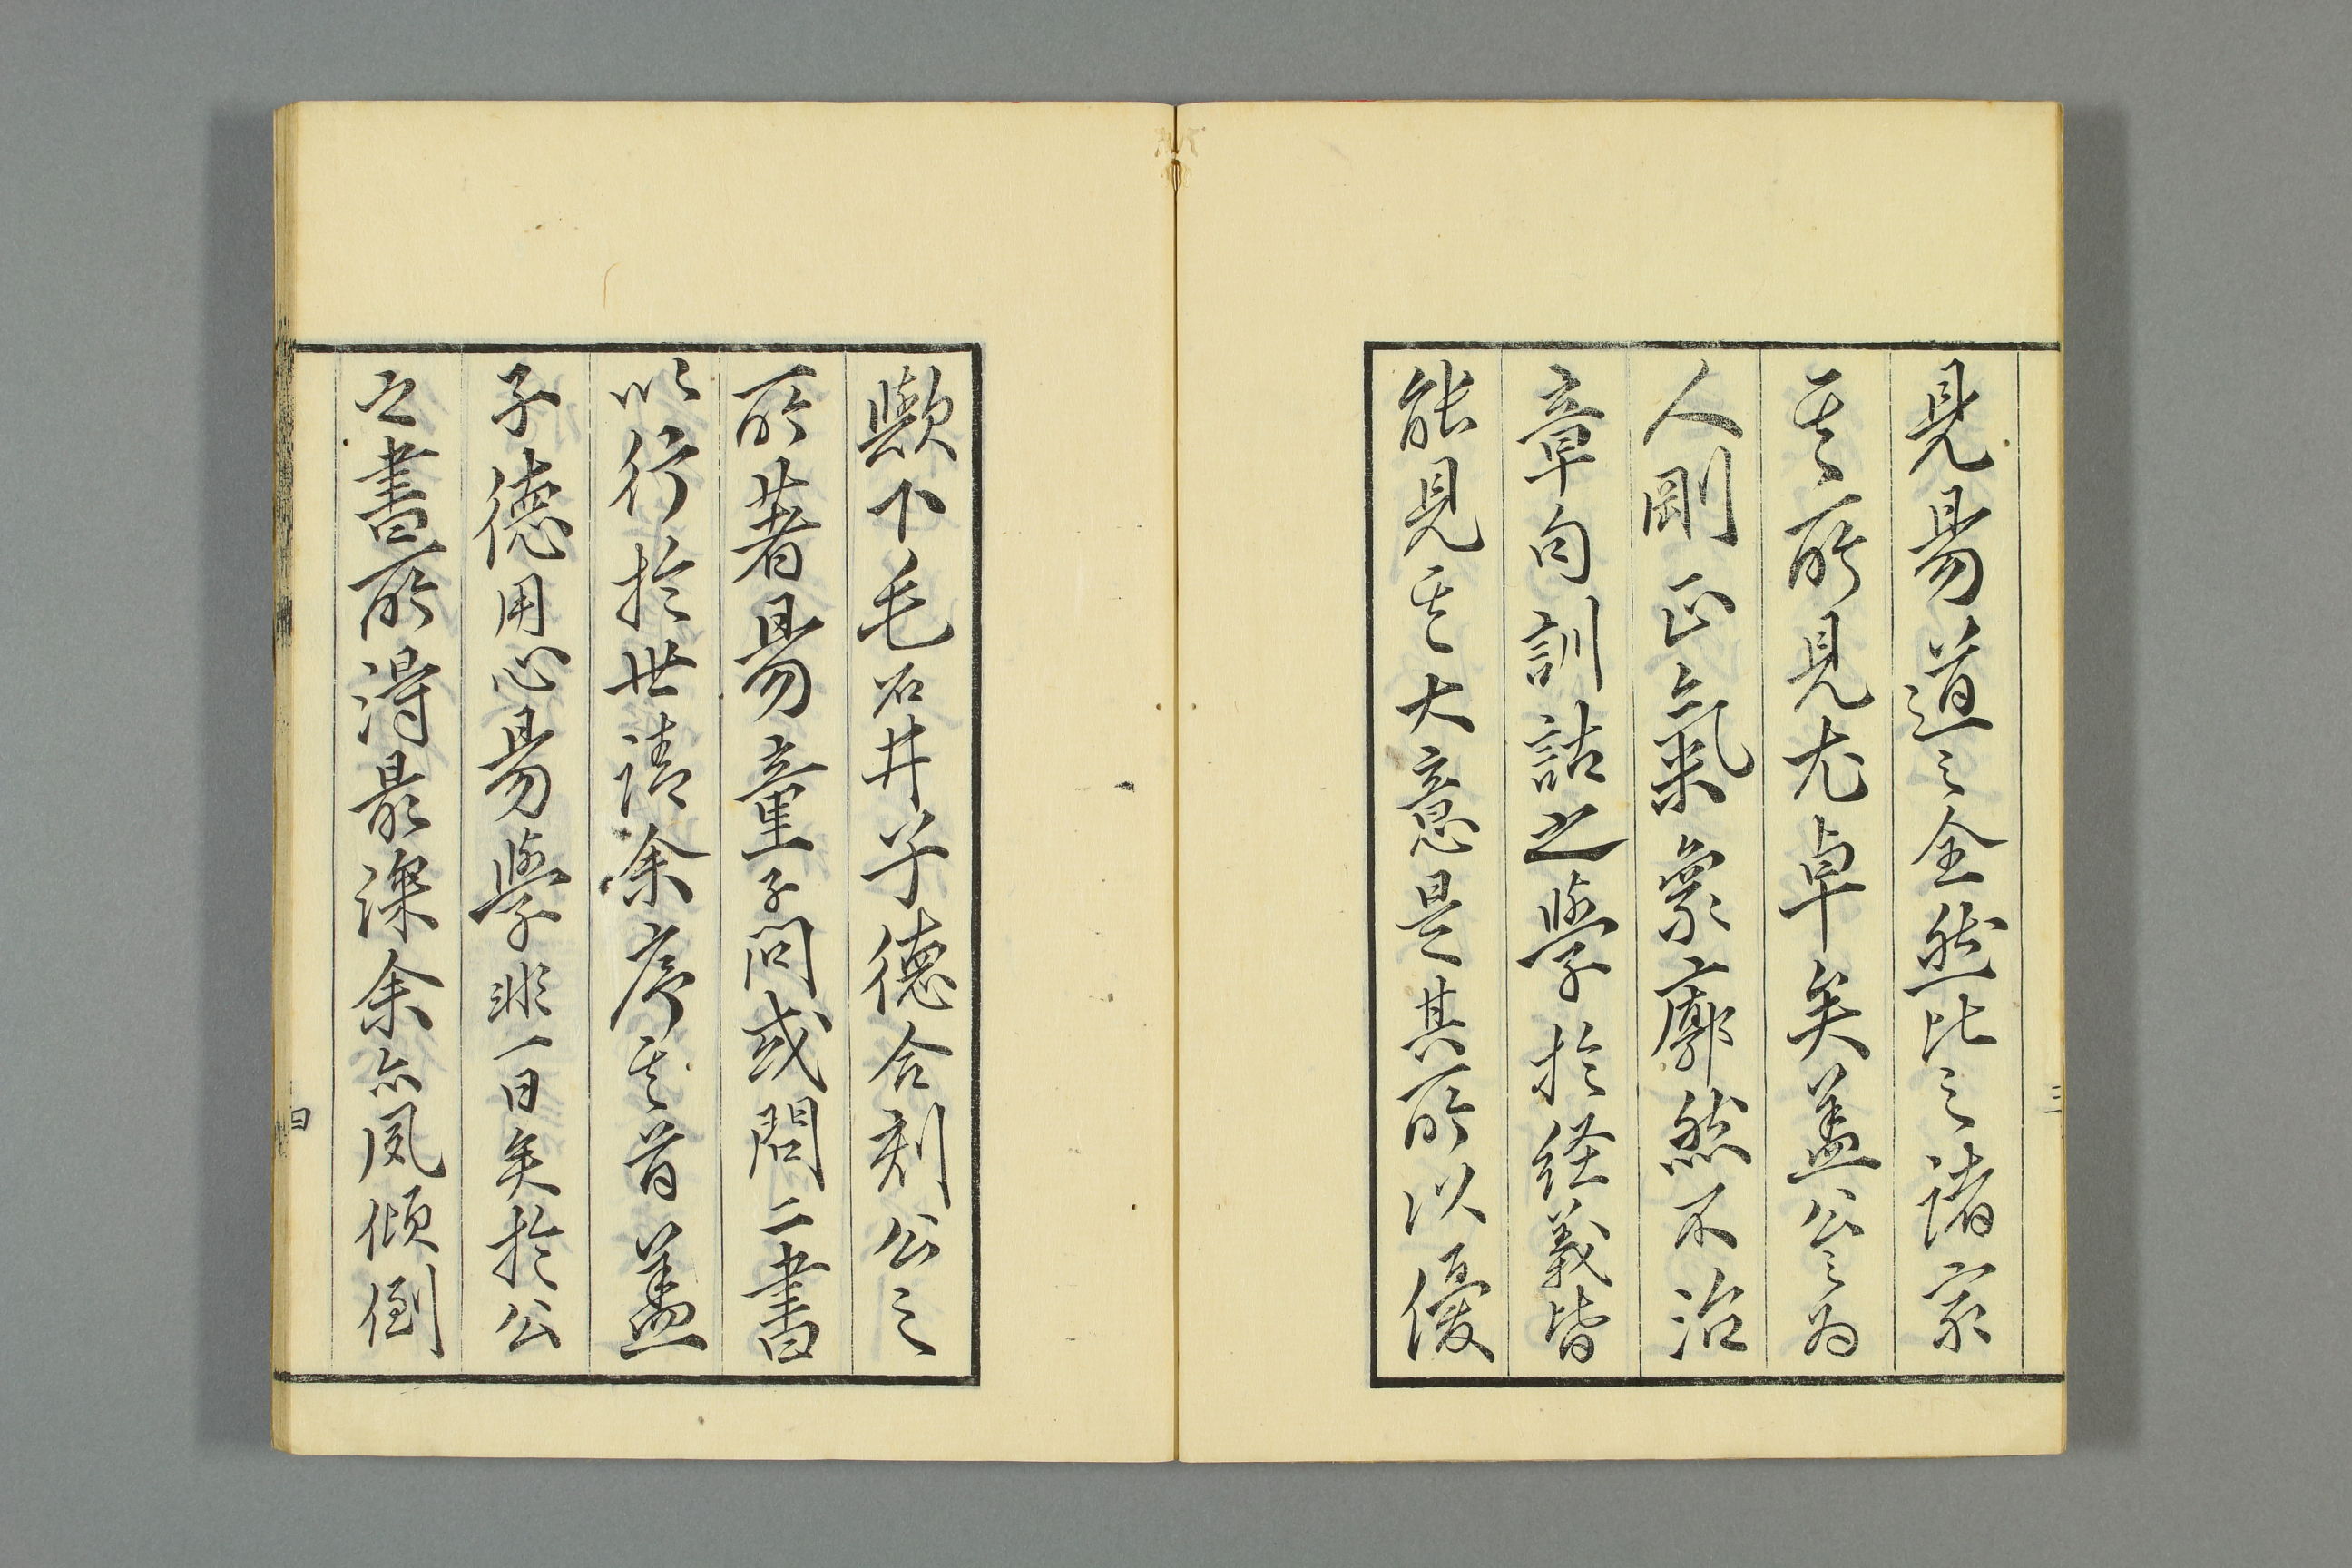 見易道之全然比之諸家
其所見尤卓矣蓋公之為
人剛正氣象廓然不治
章句訓詁之學於経義皆
能見其大意是其所以優
三
歟下毛石井子德合刻公之
所著易童子問或問二書
以行於世請余序其首蓋
子德用心易學非一日矣於公
之書所得最深余亦夙傾倒
四